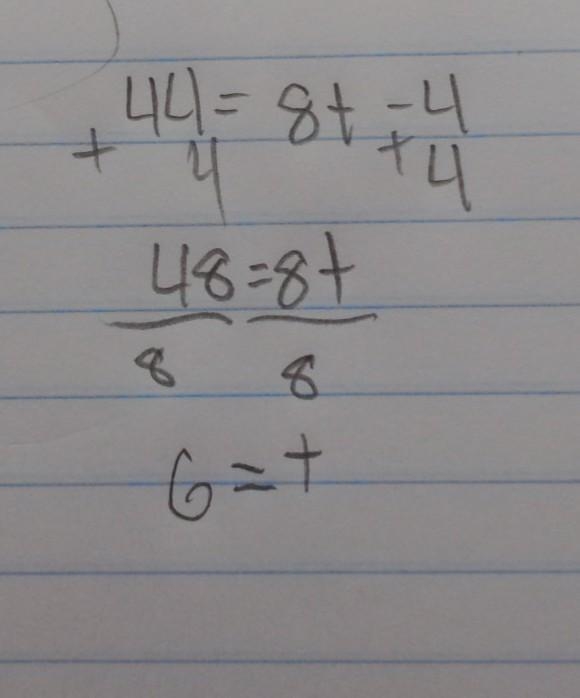 44 = 8t - 4
+ 4 + 4
48 = 8t
8 8
6 = t